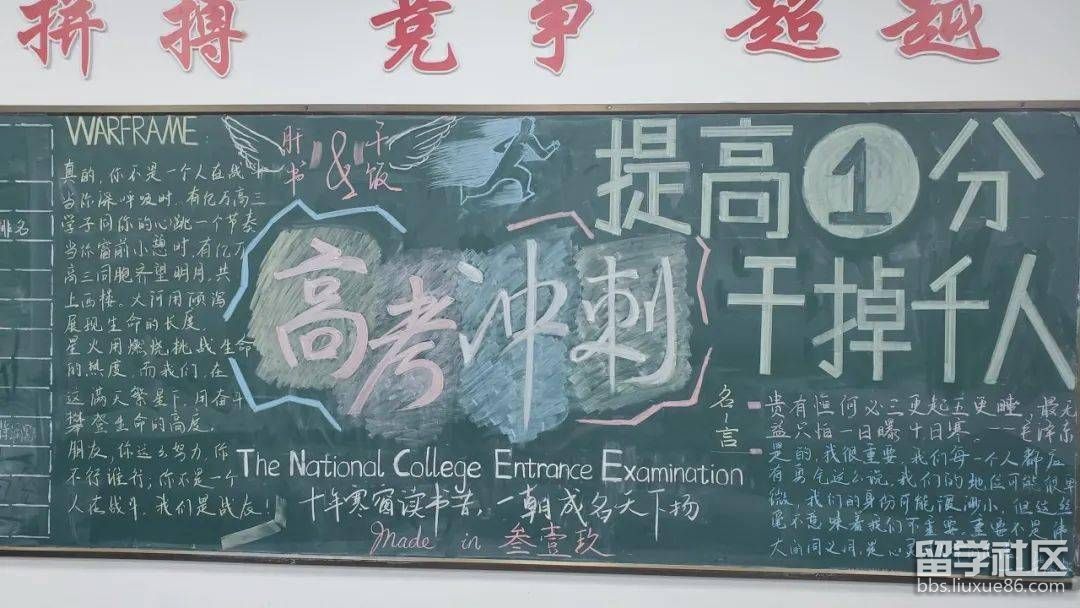 拼搏 竞争 超越
排名
WARFRAME
真的,你不是一个人在战斗
当你深呼吸时,有亿万高三
学子同你的心跳一个节奏
当你窗前小憩时,有亿万
高三同胞齐望明月,共
上西楼。大河用倾泻
展现生命的长度,
星火用燃烧挑战生命
的热度,而我们,在
这满天繁星下,用奋斗
攀登生命的高度。
朋友,你这么努力,你
不得谁行;你不是一个
人在战斗,我们是战友!
肝书 & 干饭
高考冲刺
The National College Entrance Examination
十年寒窗读书苦,一朝成名天下扬
Made in 叁壹玖
提高1分
干掉千人
名言
贵有恒何必三更起五更睡,最无
益只怕一日曝十日寒。——毛泽东
是的,我很重要,我们每一个人都应
有勇气这么说。我们的地位可能很卑
微,我们的身份可能很渺小,但这丝
毫不意味着我们不重要。重要不是伟
大的同义词,是心灵
留学社区
bbs.liuxue86.com